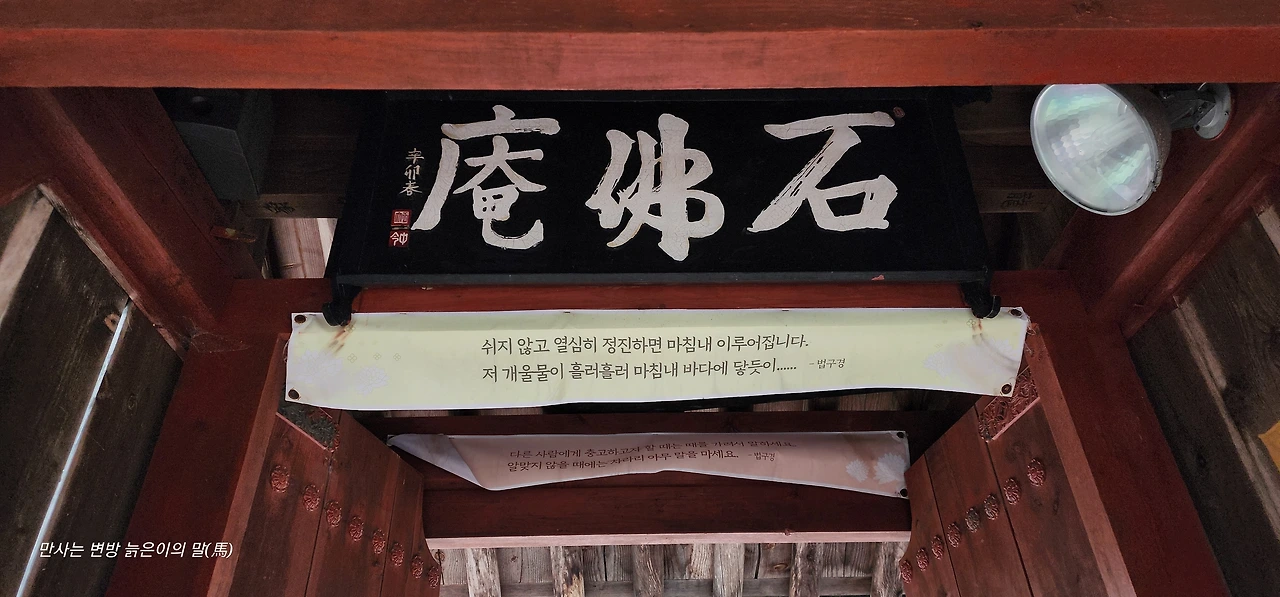 石佛庵
辛卯春
쉬지 않고 열심히 정진하면 마침내 이루어집니다.
저 개울물이 흘러흘러 마침내 바다에 닿듯이...... - 법구경
다른 사람에게 충고하고자 할 때는 때를 가려서 말하세요.
알맞지 않을 때에는 차라리 아무 말을 마세요. - 법구경
만사는 변방 늙은이의 말(馬)